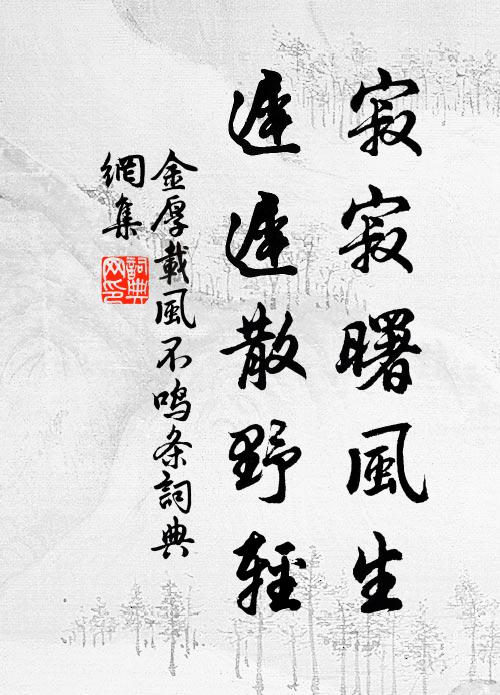 寂寂曙風生
遲遲散野輕
金厚載風不鸣条詞典
網集
詞典
网印